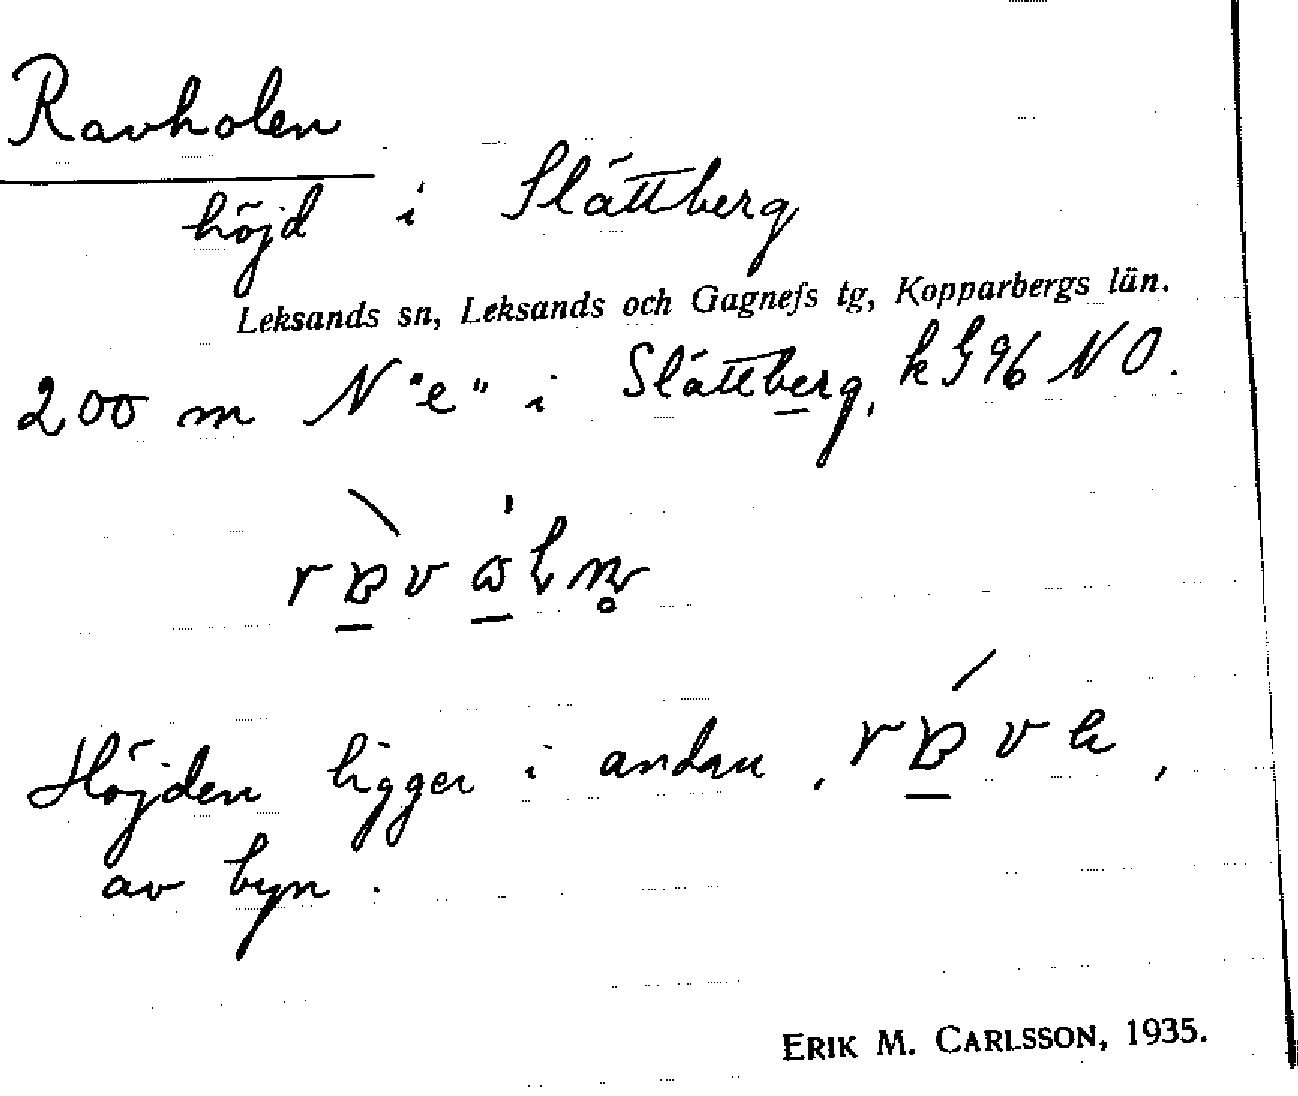 Ravholen
höjd i Slättberg
Leksands sn, Leksands och Gagnefs tg, Kopparbergs län.
200 m N "e" i Slättberg, k G 96 NO.
Höjden ligger i andan
av byn.
ERIK M. CARLSSON, 1935.